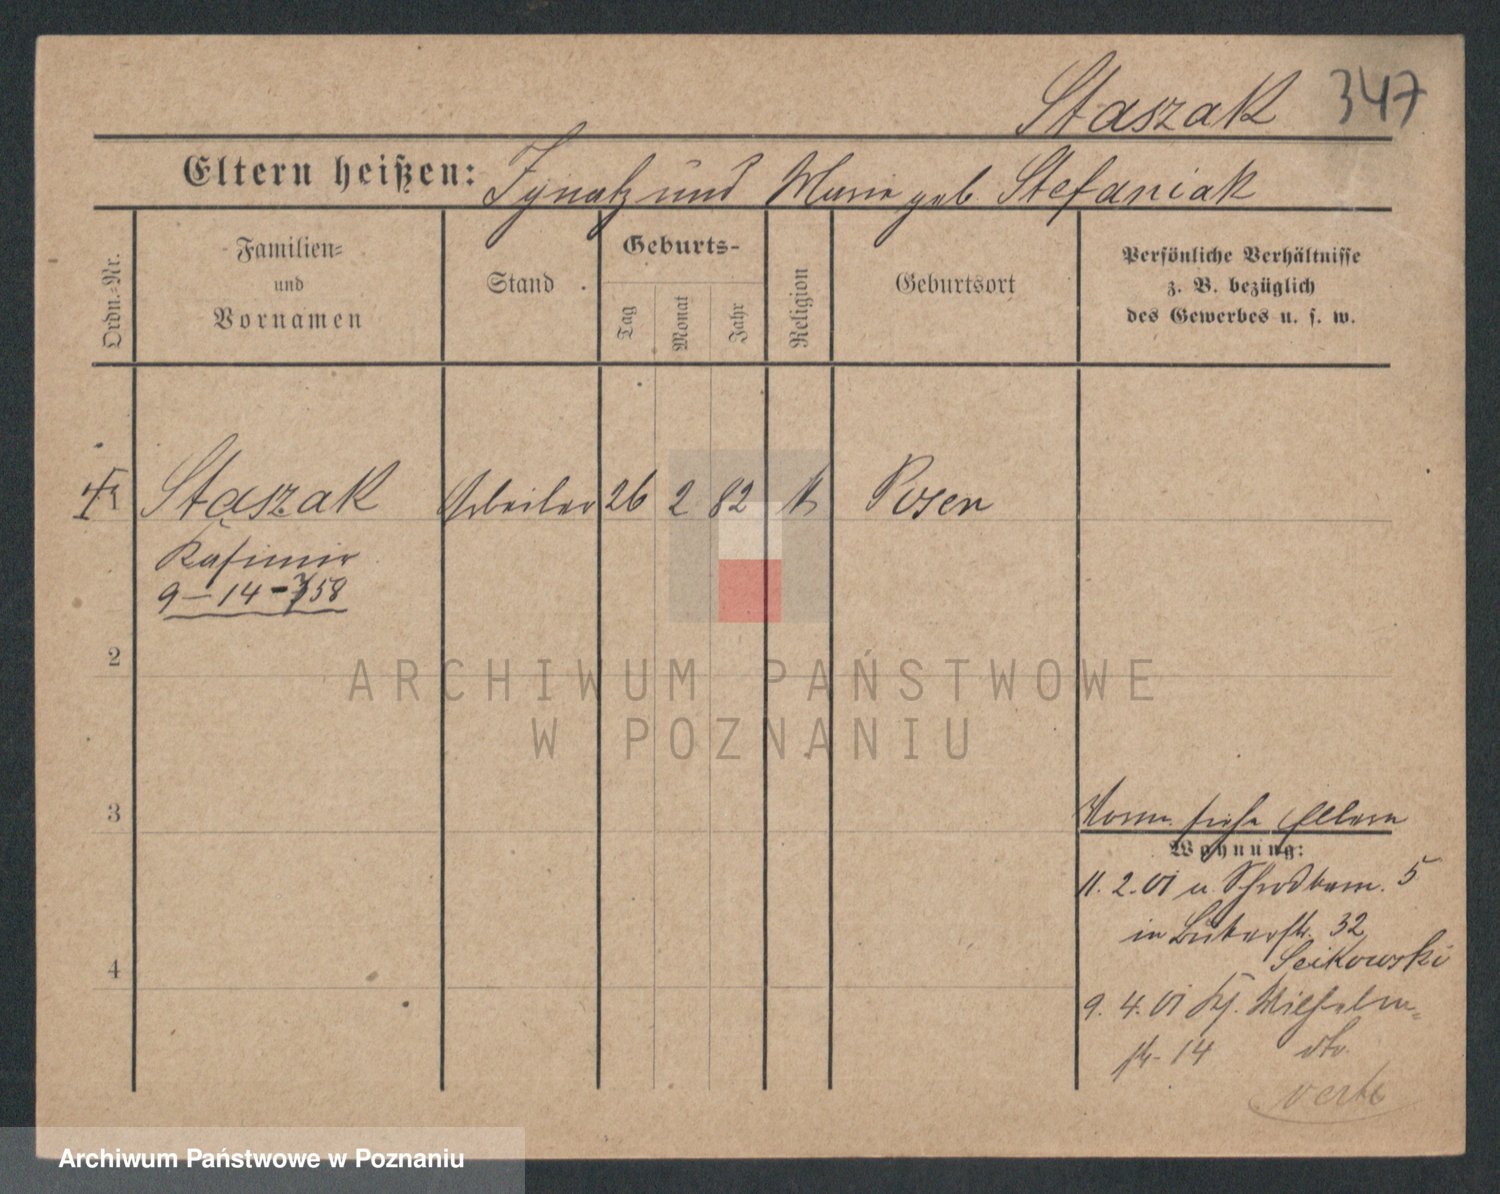 Staszak 347
Eltern heißen: Ignatz und Marie geb. Stefaniak
Ordn.-Nr.
Familien-
und
Vornamen
Stand
Geburts-
Tag
Monat
Jahr
Religion
Geburtsort
Persönliche Verhältnisse
z. B. bezüglich
des Gewerbes u. s. w.
Staszak Arbeiter 26 2 82 k Posen
Kasimir
9-14-758
2
ARCHIWUM PAŃSTWOWE
W POZNANIU
3
Vorm. siehe Eltern
Wohnung:
11. 2. 01 u. Schrodkam. 5
in 32
Seikowski
9. 4. 01 Wilhelm-
str. 14 dto.
verte
4
Archiwum Państwowe w Poznaniu